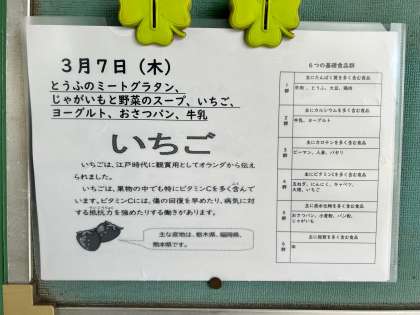 3月7日（木）
とうふのミートグラタン、
じゃがいもと野菜のスープ、いちご、
ヨーグルト、おさつパン、牛乳
いちご
いちごは、江戸時代に観賞用としてオランダから伝え
られました。
いちごは、果物の中でも特にビタミンCを多く含んで
います。ビタミンCには、傷の回復を早めたり、病気に対
する抵抗力を強めたりする働きがあります。
主な産地は、栃木県、福岡県、
熊本県です。
6つの基礎食品群
1群
主にたんぱく質を多く含む食品
牛肉、とうふ、大豆、鶏肉
2群
主にカルシウムを多く含む食品
牛乳、ヨーグルト
3群
主にカロテンを多く含む食品
ピーマン、人参、パセリ
4群
主にビタミンCを多く含む食品
玉ねぎ、にんにく、キャベツ、
大根、いちご
5群
主に炭水化物を多く含む食品
おさつパン、小麦粉、パン粉、
じゃがいも
6群
主に脂質を多く含む食品